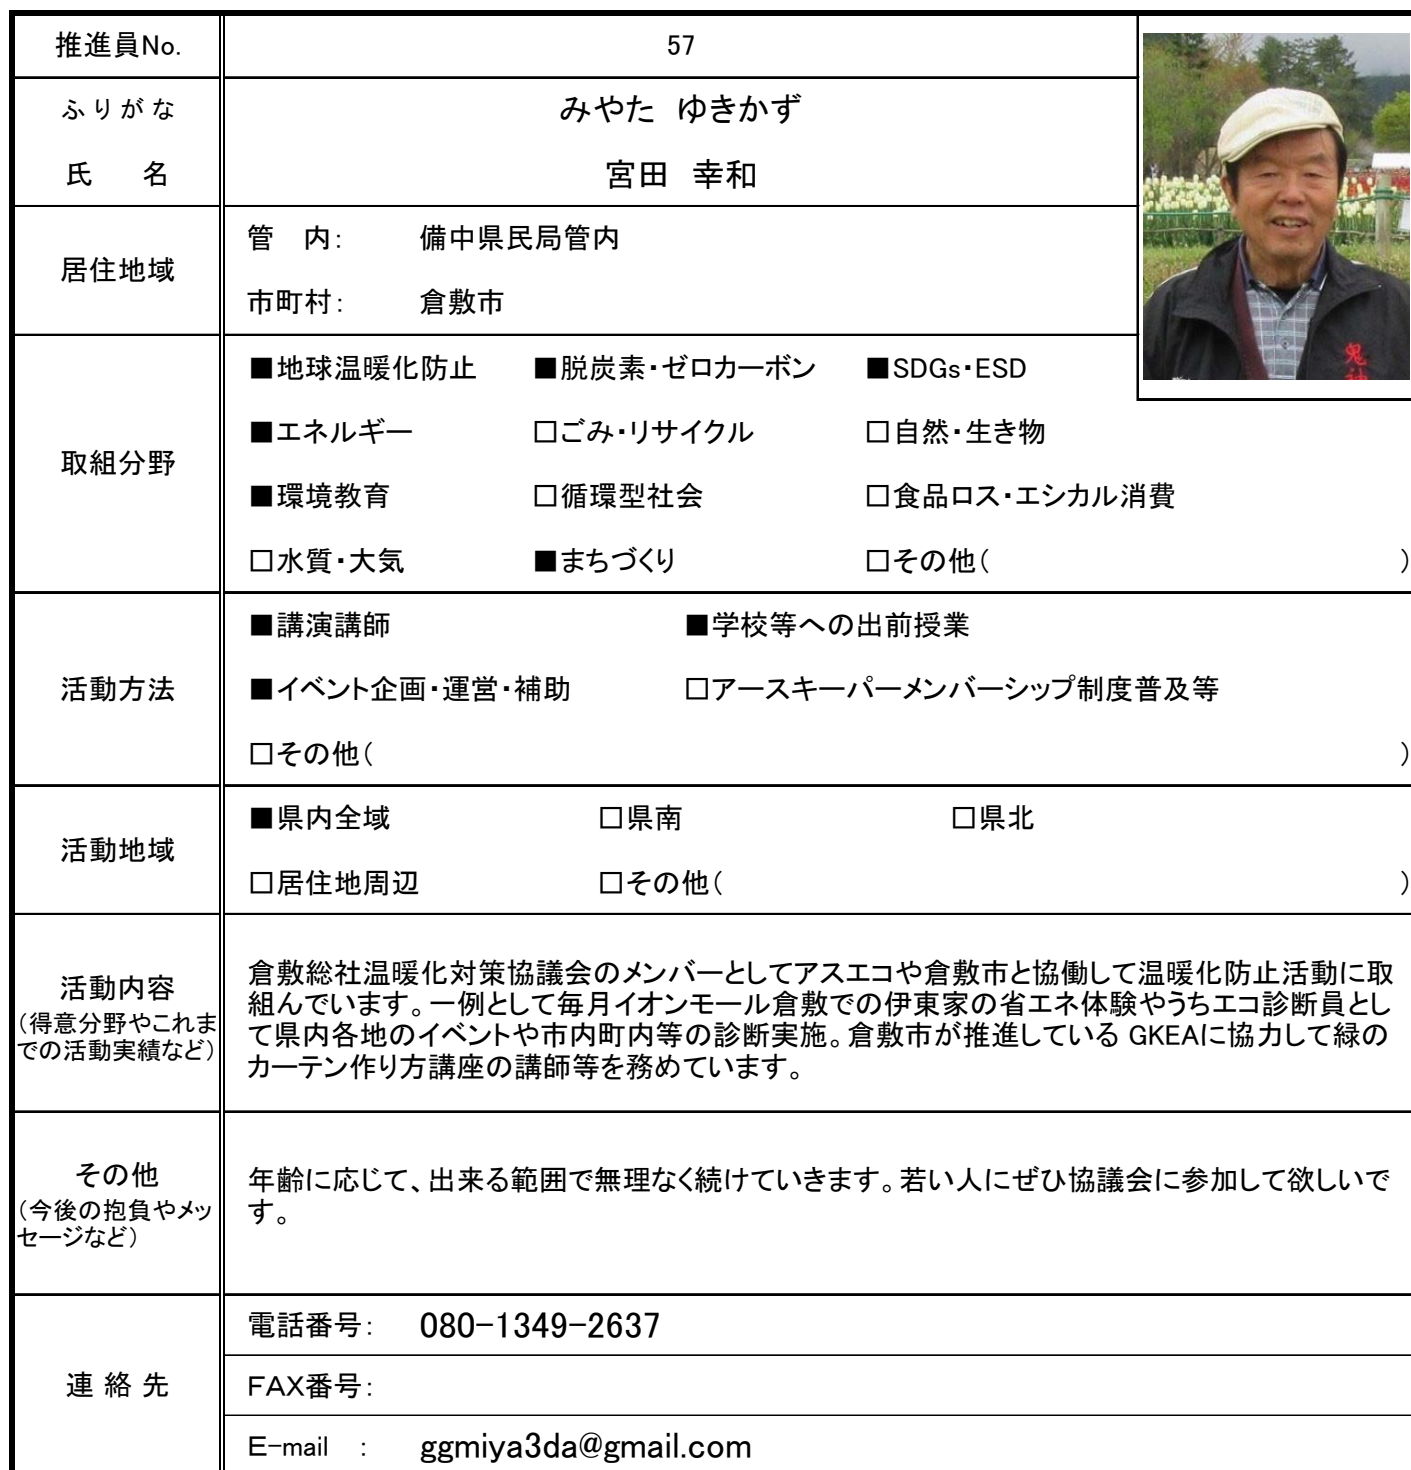 推進員No. 57
ふりがな みやた ゆきかず
氏 名 宮田 幸和
居住地域
管 内: 備中県民局管内
市町村: 倉敷市
取組分野
■地球温暖化防止 ■脱炭素・ゼロカーボン ■SDGs・ESD
■エネルギー □ごみ・リサイクル □自然・生き物
■環境教育 □循環型社会 □食品ロス・エシカル消費
□水質・大気 ■まちづくり □その他( )
活動方法
■講演講師 ■学校等への出前授業
■イベント企画・運営・補助 □アースキーパーメンバーシップ制度普及等
□その他( )
活動地域
■県内全域 □県南 □県北
□居住地周辺 □その他( )
活動内容
(得意分野やこれま
での活動実績など)
倉敷総社温暖化対策協議会のメンバーとしてアスエコや倉敷市と協働して温暖化防止活動に取
組んでいます。一例として毎月イオンモール倉敷での伊東家の省エネ体験やうちエコ診断員とし
て県内各地のイベントや市内町内等の診断実施。倉敷市が推進している GKEAに協力して緑の
カーテン作り方講座の講師等を務めています。
その他
(今後の抱負やメッ
セージなど)
年齢に応じて、出来る範囲で無理なく続けていきます。若い人にぜひ協議会に参加して欲しいで
す。
連 絡 先
電話番号: 080-1349-2637
FAX番号:
E-mail : ggmiya3da@gmail.com
鬼神